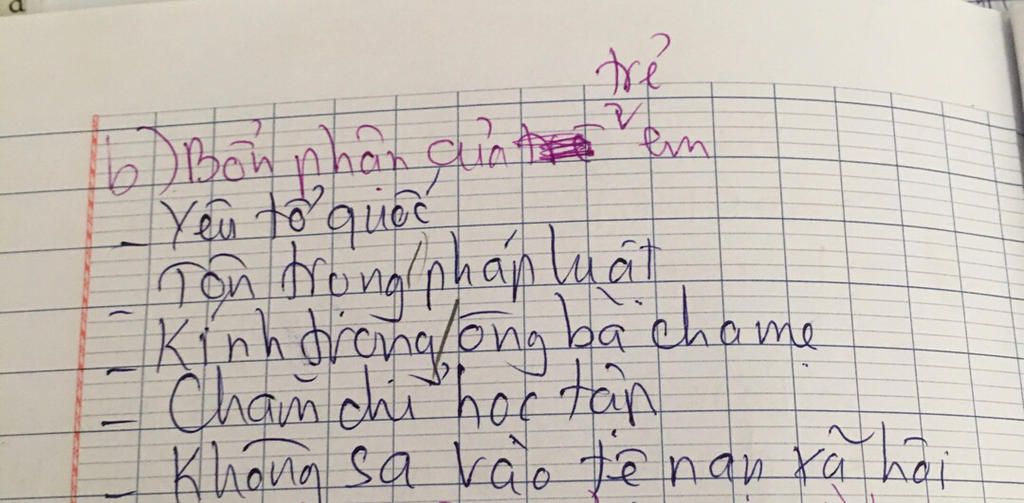 b) Bổn phận của trẻ em
- Yêu tổ quốc
- Tôn trọng pháp luật
- Kính trọng ông bà cha mẹ
- Chăm chỉ học tập
- Không sa vào tệ nạn xã hội